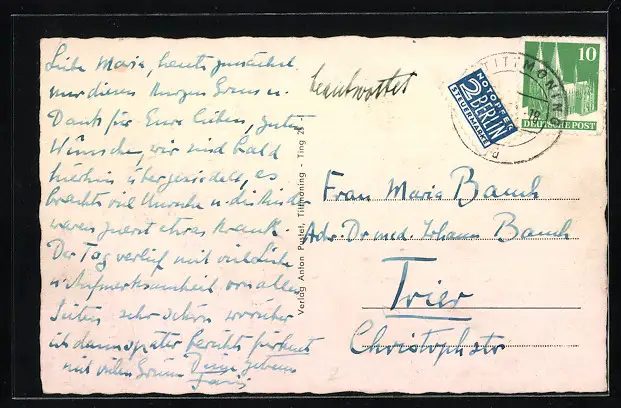 Liebe Maria, heute zunächst
nur diesen kurzen Gruss u.
Dank für Eure lieben, guten
Wünsche, wir sind bald
hierhin übergesiedelt, es
brachte viel Unruhe u. die Kinder
waren zuerst etwas krank.
Der Tag verlief mit viel Liebe
u. Aufmerksamkeit von allen
Seiten sehr schön worüber
ich dann später berichte für heute
mit vielen Grüssen Deine
beantwortet
Verlag Anton Pustet, Tittmoning - Ting 25
NOTOPFER
2 BERLIN
STEUERMARKE
TITTMONING
10
DEUTSCHE POST
Frau Maria Bauch
Adr. Dr med. Johann Bauch
Trier
Christophstr